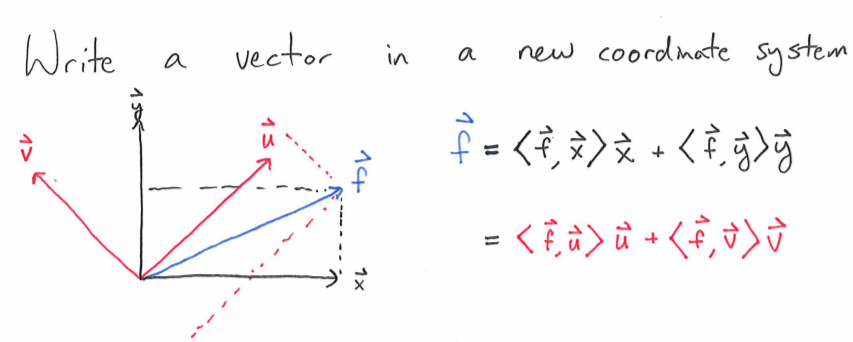 Write a vector in a new coordinate system
y⃗
v⃗
u⃗
f⃗
x⃗
f⃗ = ⟨f⃗, x⃗⟩x⃗ + ⟨f⃗, y⃗⟩y⃗
= ⟨f⃗, u⃗⟩u⃗ + ⟨f⃗, v⃗⟩v⃗